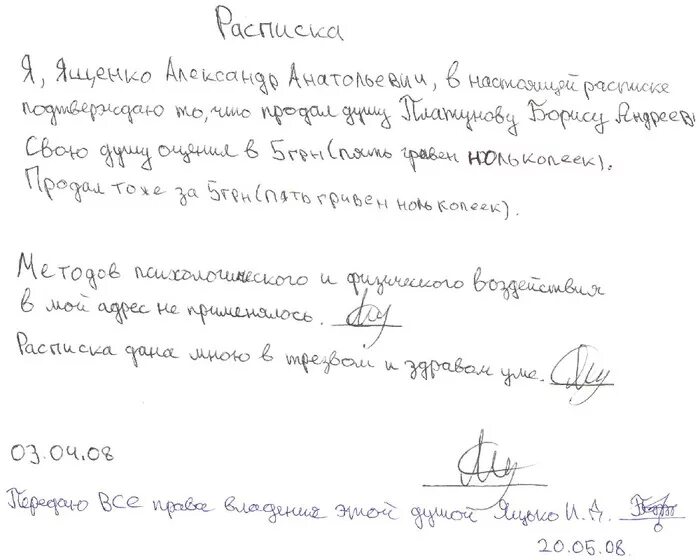 Расписка
Я, Ященко Александр Анатольевич, в настоящей расписке
подтверждаю то, что продал душу Платунову Борису Андреев
Свою душу оценил в 5грн (пять гривен ноль копеек).
Продал тоже за 5грн (пять гривен ноль копеек).
Методов психологического и физического воздействия
в мой адрес не применялось.
Расписка дана мною в трезвом и здравом уме.
03.04.08
Передаю ВСЕ права владения этой душой Яцько И.А.
20.05.08.